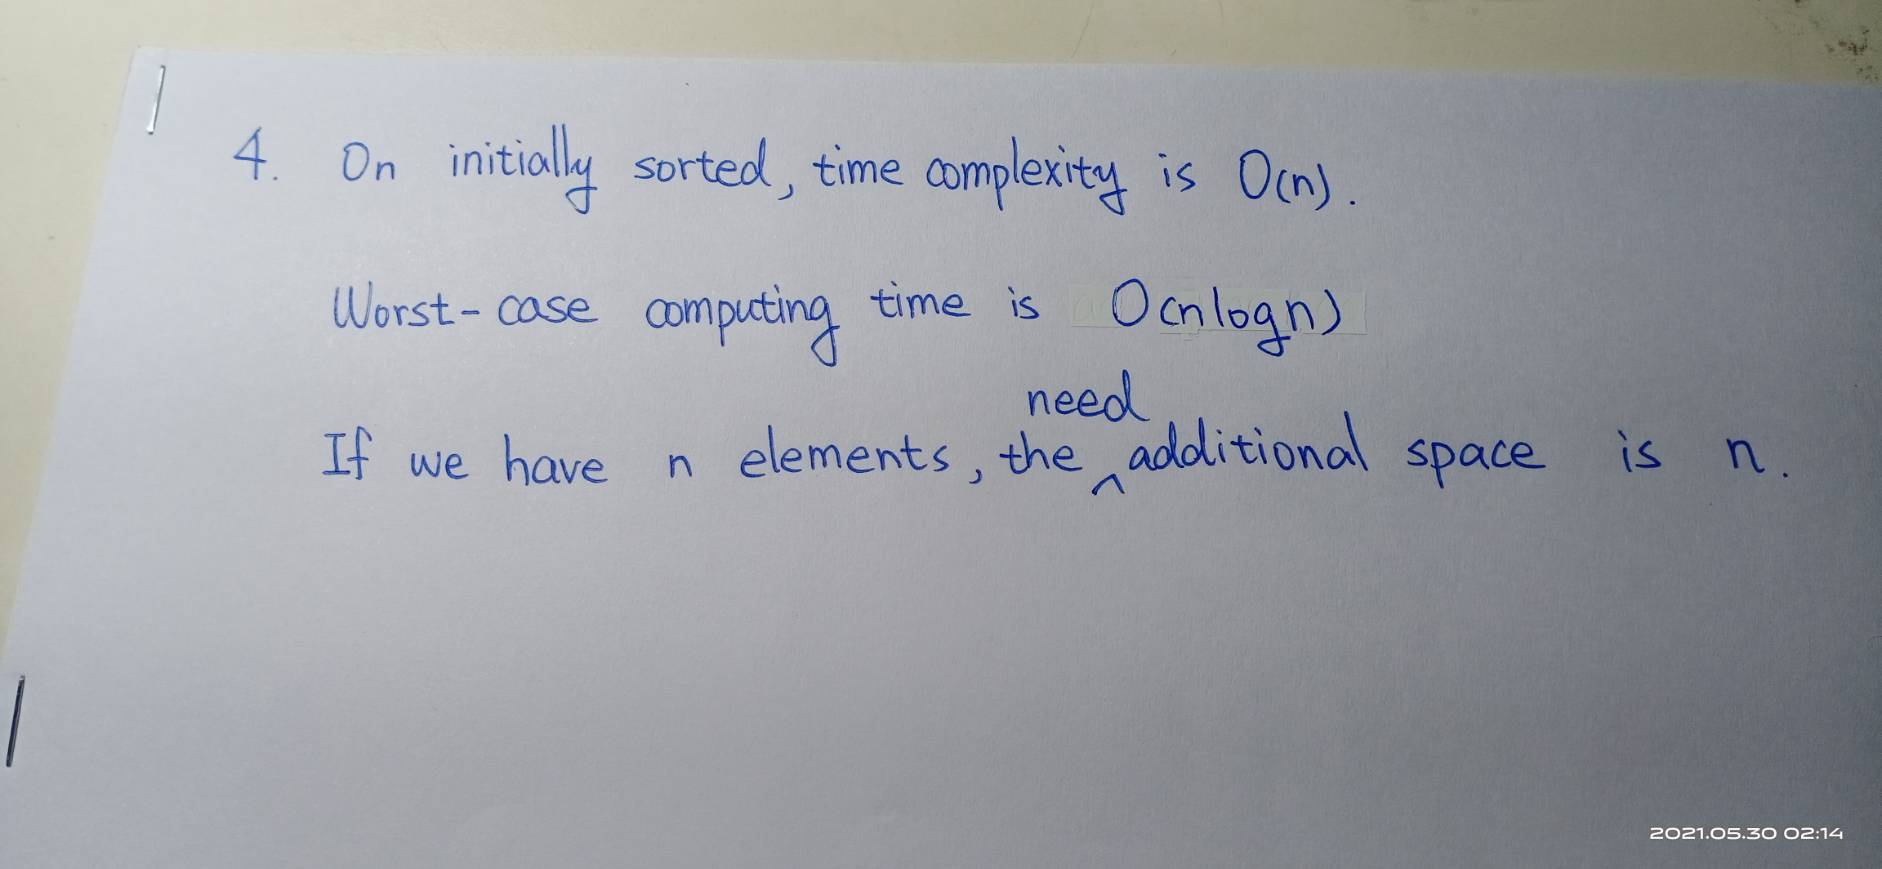 4. On initially sorted, time complexity is O(n).
Worst-case computing time is O(nlogn)
need
If we have n elements, the ^ additional space is n.
2021.05.30 02:14